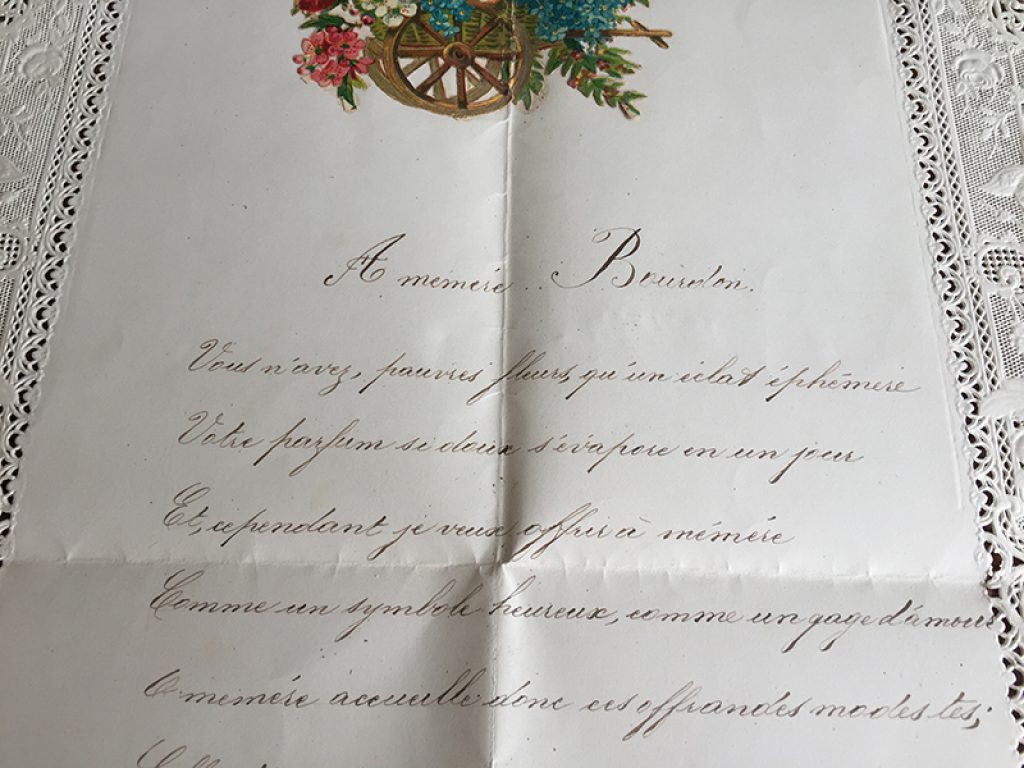 A mémère .. Bourdon.
Vous n'avez, pauvres fleurs, qu'un éclat éphémère
Votre parfum si doux s'évapore en un jour
Et, cependant je veux offrir à mémère
Comme un symbole heureux, comme un gage d'amour
O mémère accueille donc ces offrandes modestes;